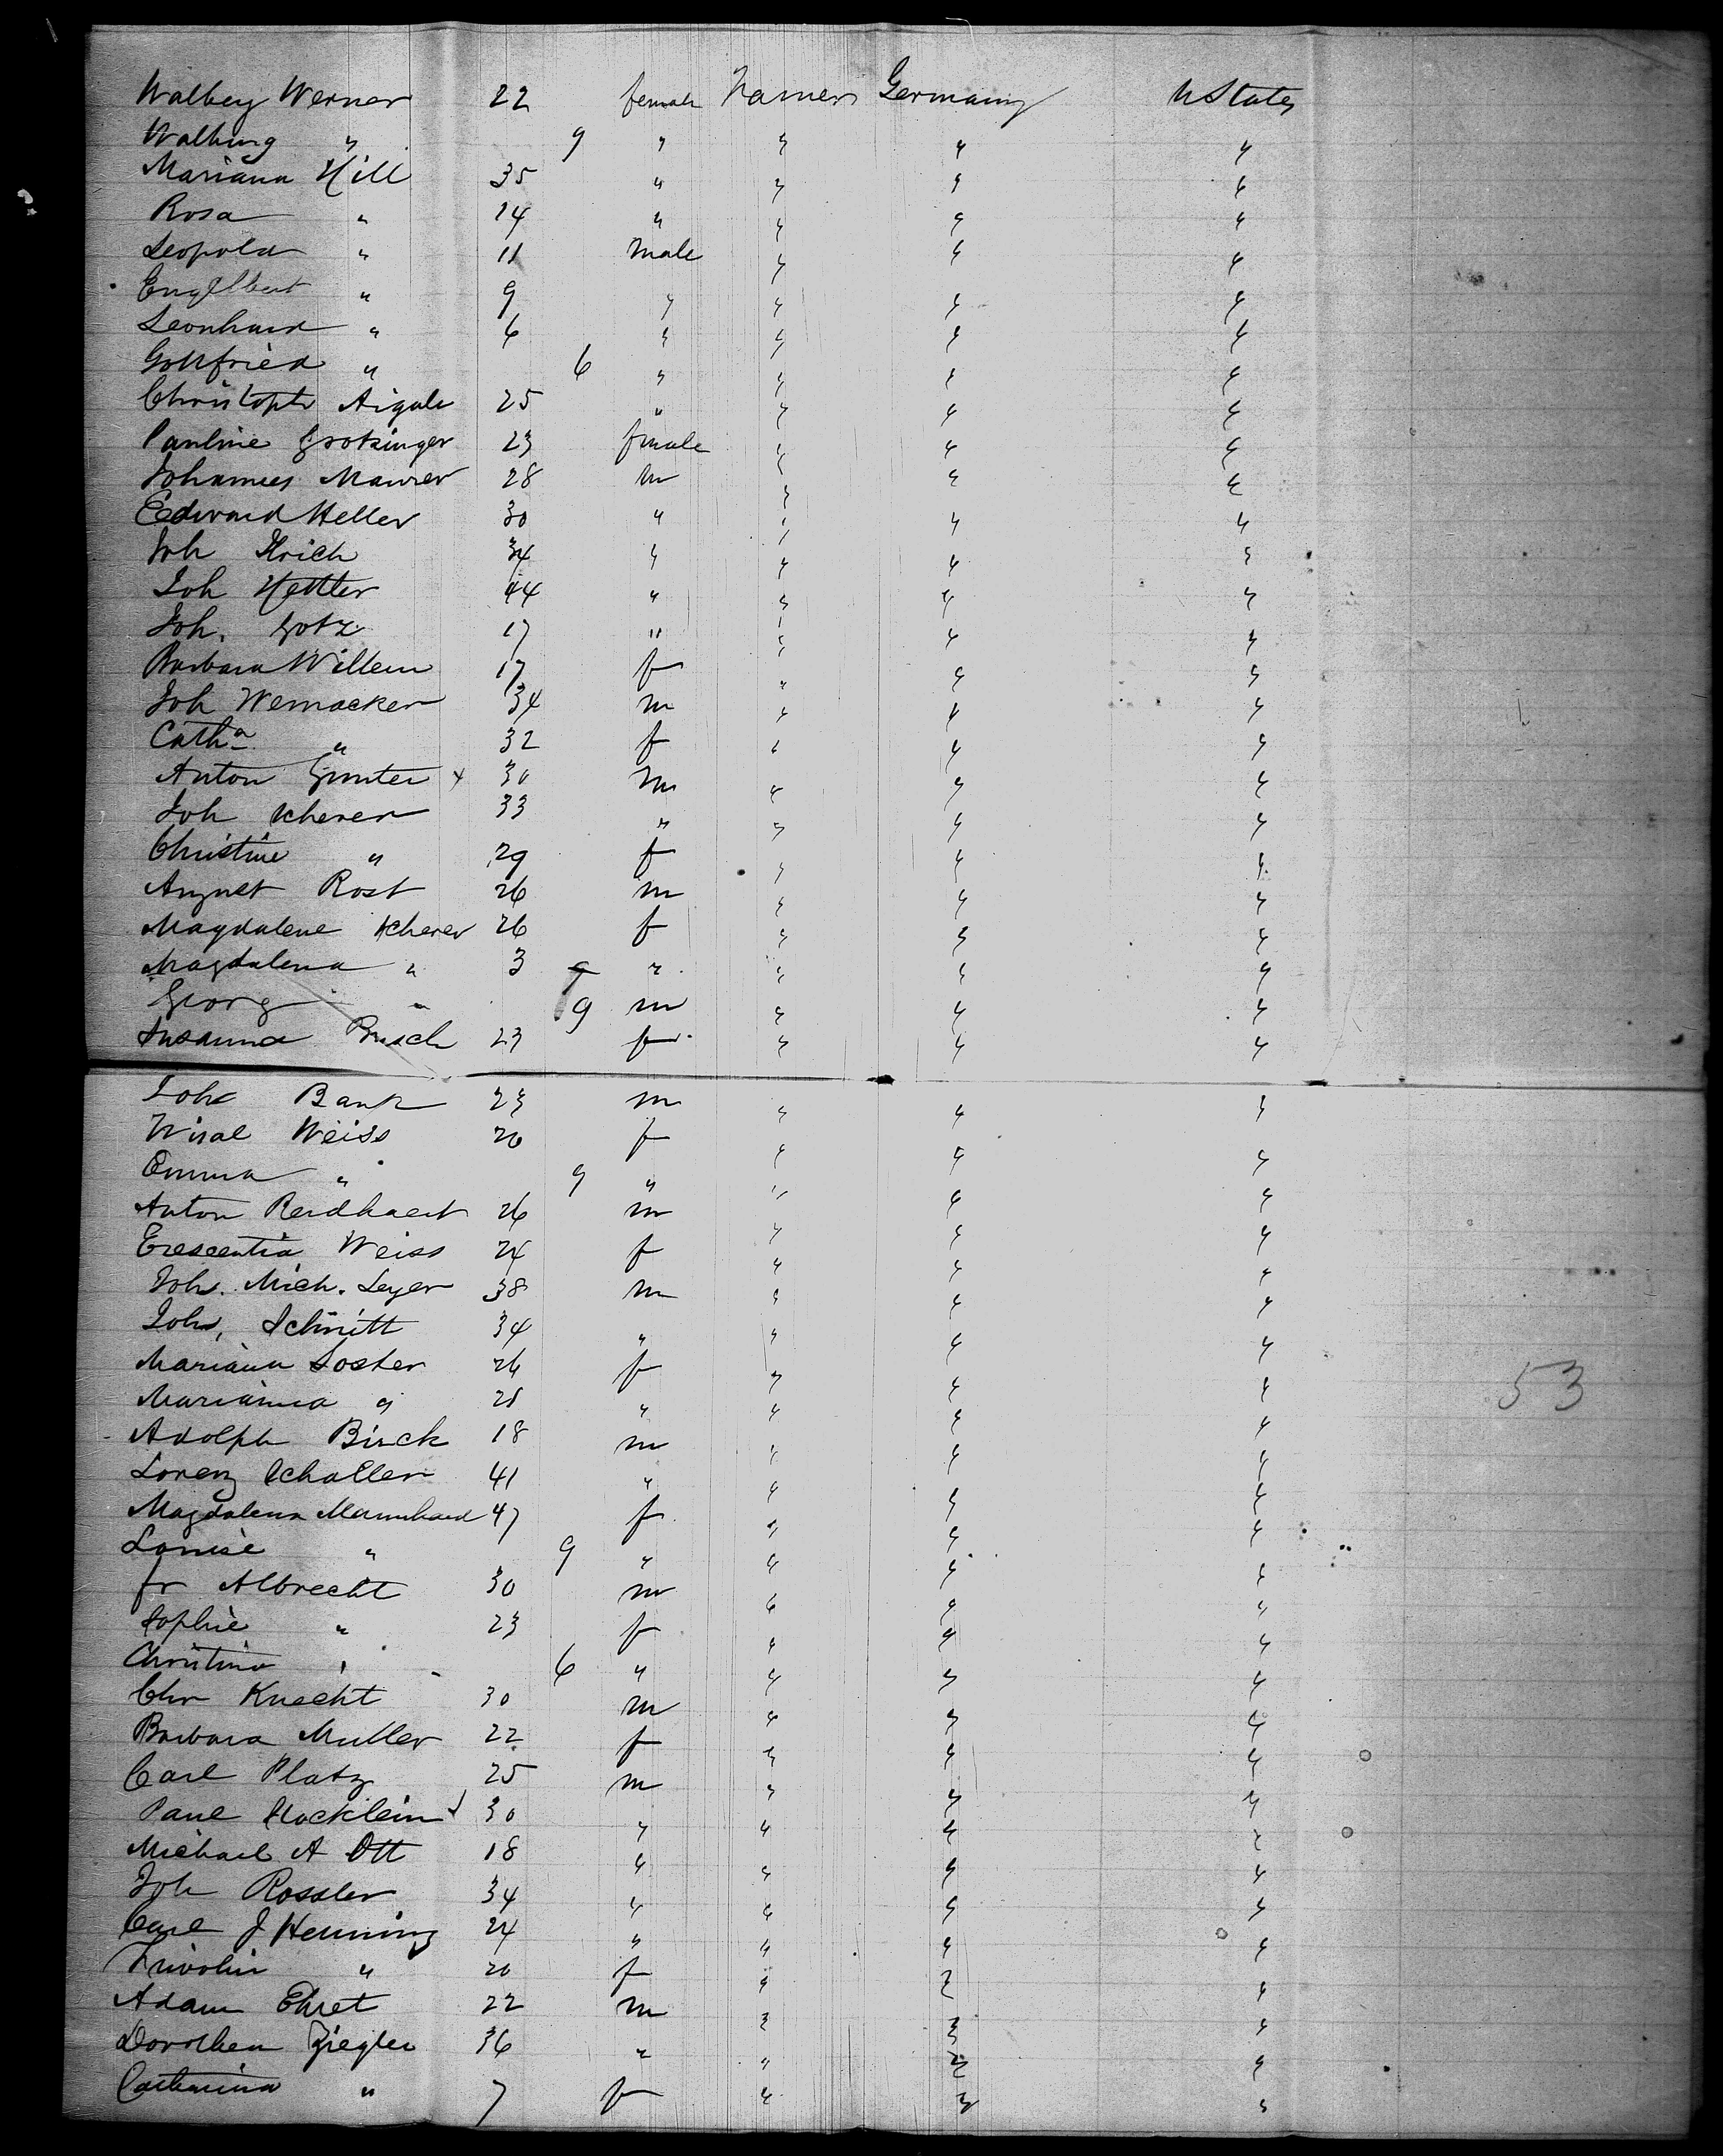 Walberg Werner 22 female Farmer Germany U States
Walburg " 9 " " " "
Mariana Hill 35 " " " "
Rosa " 14 " " " "
Leopold " 11 male " " "
Engelbert " 9 " " " "
Leonhard " 6 " " " "
Gottfried " 6 " " " "
Christoph Aigale 25 " " " "
Pauline Grotzinger 23 female " " "
Johannes Maurer 28 m " " "
Eedward Heller 30 " " " "
Joh 34 " " " "
Joh Hettler 44 " " " "
Joh. Gotz 17 " " " "
Barbara Willem 17 f " " "
Joh Wernacker 34 m " " "
Catha " 32 f " " "
Anton Gunter x 30 m " " "
Joh Scherer 33 " " " "
Christine " 29 f " " "
August Rost 26 m " " "
Magdalene Scherer 26 f " " "
Magdalena " 3 " " " "
Georg " 9 m " " "
Susanna Busch 23 f " " "
Joh Bank 23 m " " "
Weiss 20 f " " "
Emma " 9 " " " "
Anton 26 m " " "
Crescentia Weiss 24 f " " "
Joh. Mich. Leyer 38 m " " "
Joh. Schmitt 34 " " " "
Mariana Soster 26 f " " "
Marianna " 28 " " " "
Adolph Birck 18 m " " "
Lorenz Schaller 41 " " " "
Magdalena Mannhard 47 f " " "
Louise " 9 " " " "
fr Albrecht 30 m " " "
Sophie " 23 f " " "
Christina " 6 " " " "
Chr Knecht 30 m " " "
Barbara Muller 22 f " " "
Carl Platz 25 m " " "
Paul 30 " " " "
Michael A Ott 18 " " " "
Joh Rossler 34 " " " "
Carl J Henning 24 " " " "
" 20 f " " "
Adam Ehret 22 m " " "
Dorothea Ziegler 36 " " " "
Catharina " 7 f " " "
53